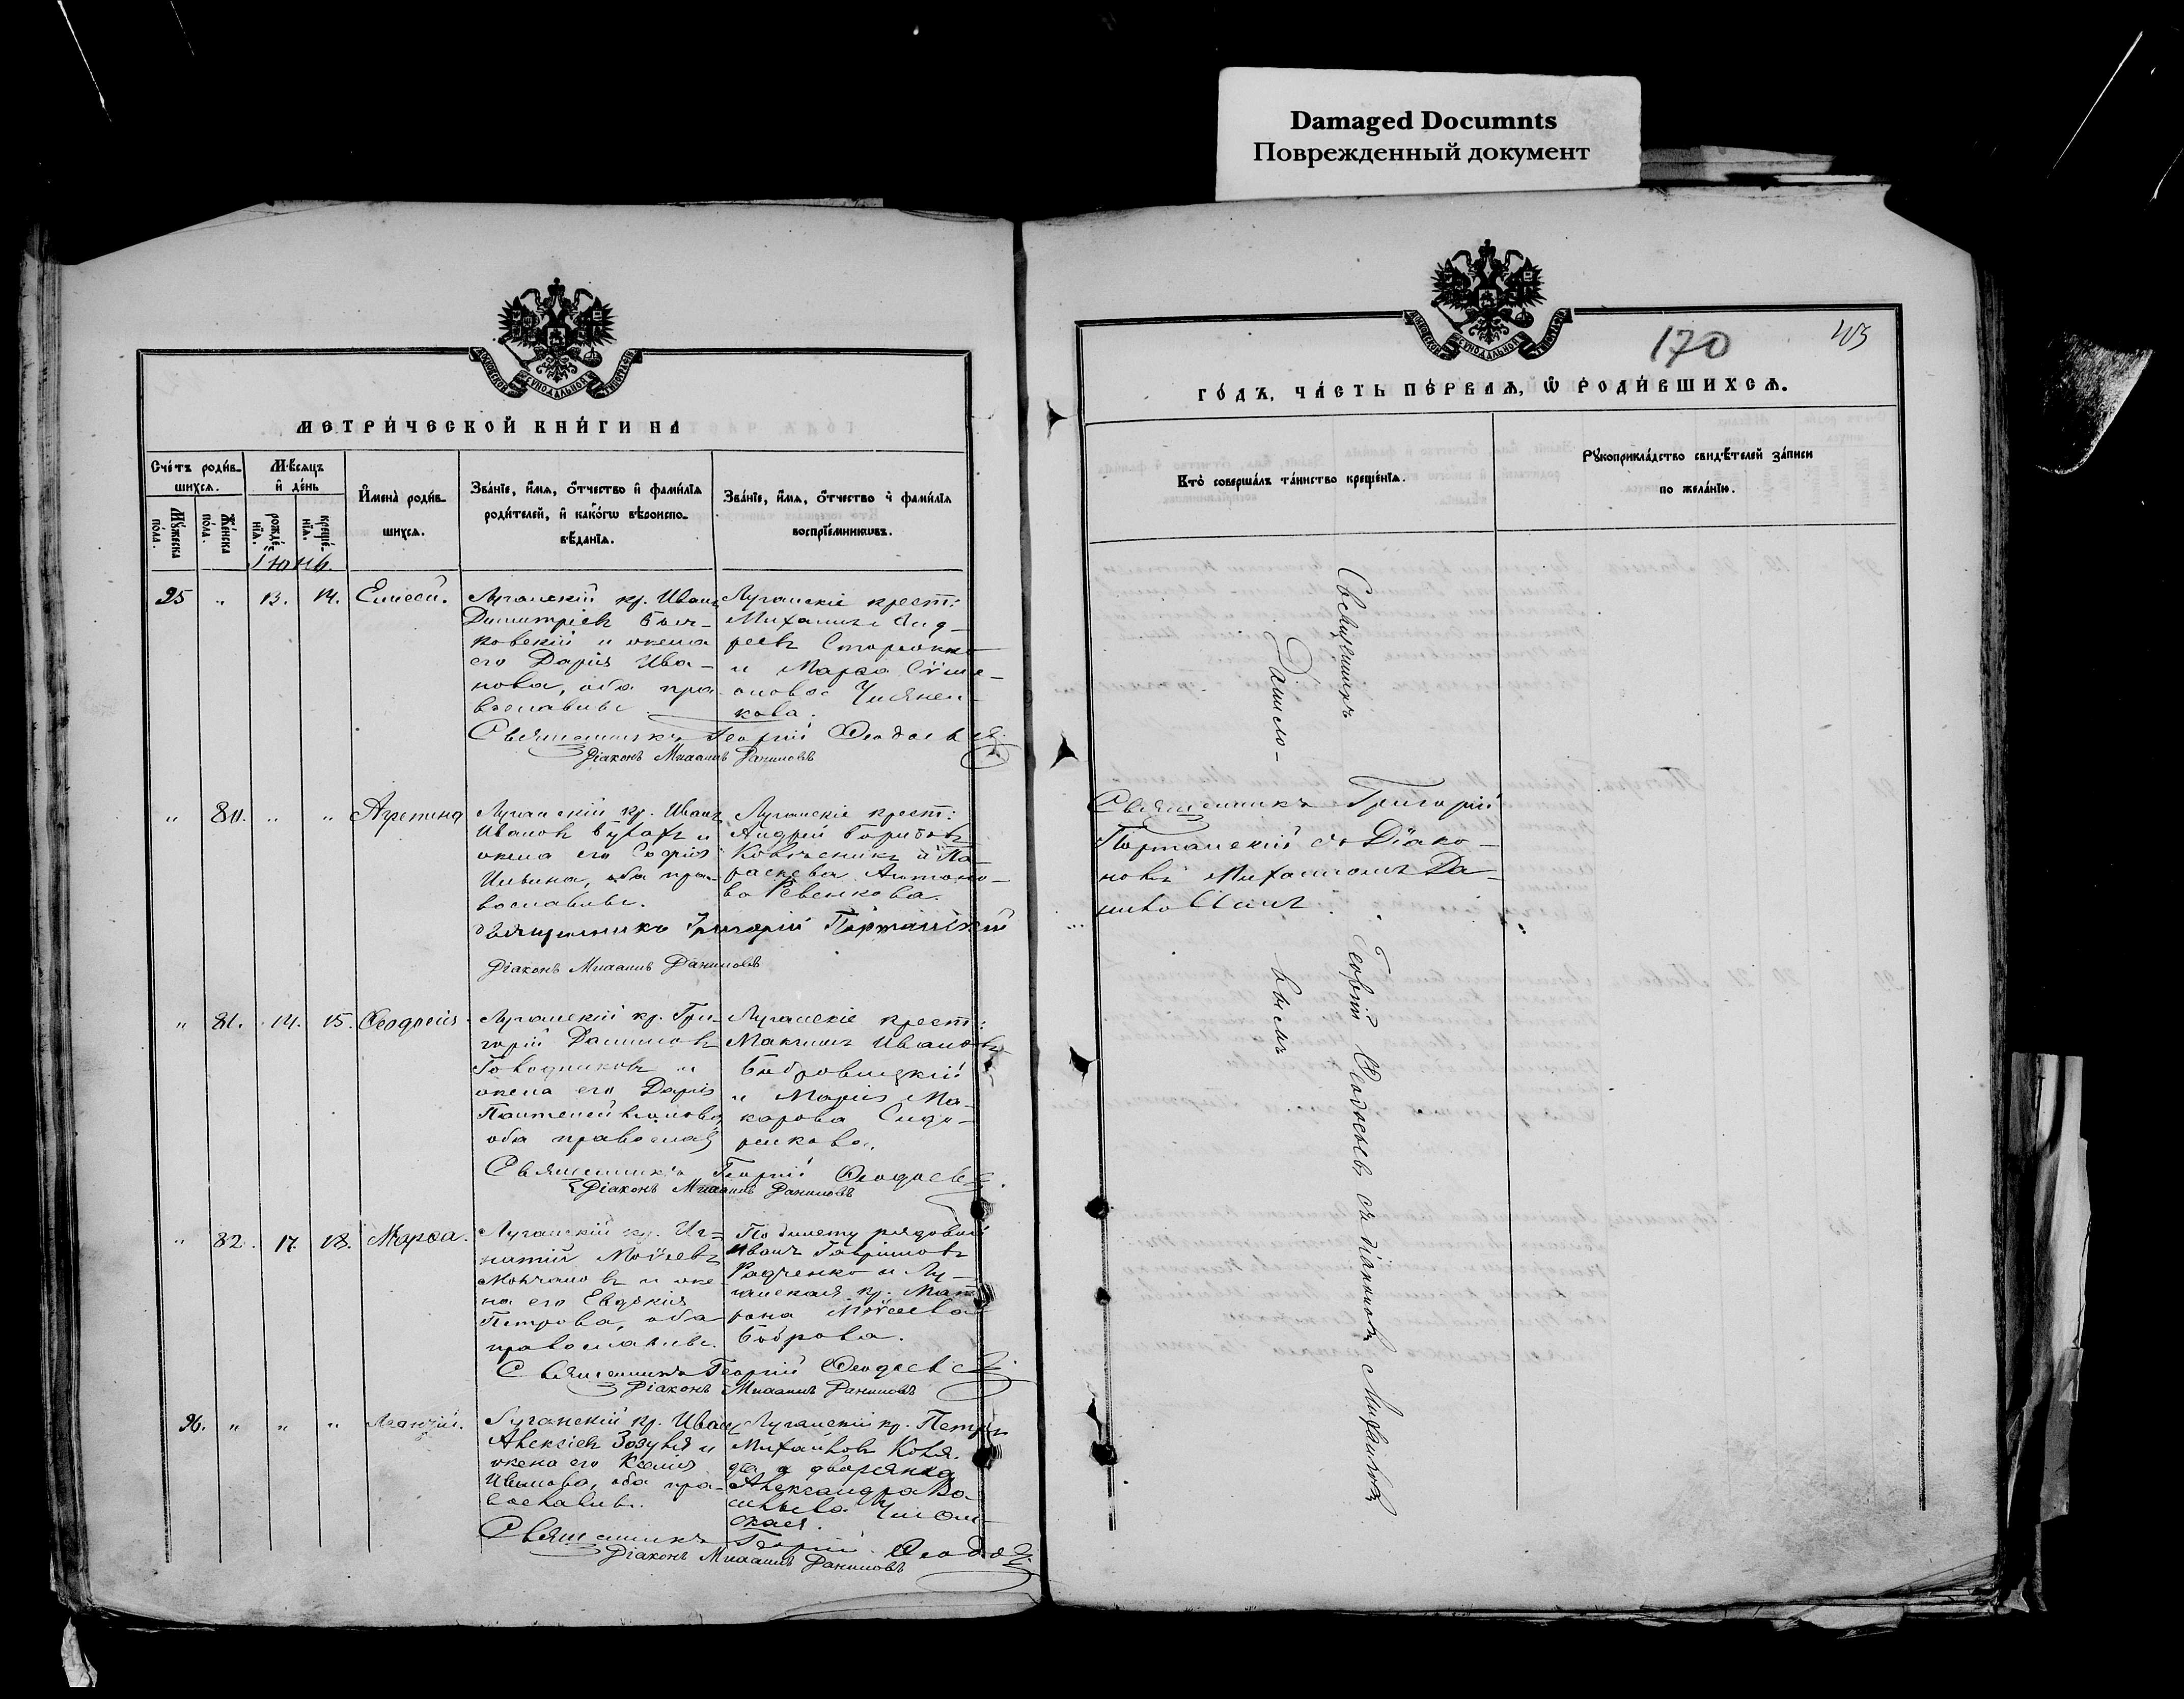 Damaged Documnts
Поврежденный документ
МОСКОВСКОЙ СѴНОДАЛЬНОЙ ТИПОГРАФІИ
МЕТРИ́ЧЕСКОЙ КНИ́ГИ НА
Сче́тъ роди́в-
шихсѧ.
Мѣ́сѧцъ
и҆ де́нь
Мꙋ́жеска
по́ла.
Же́нска
по́ла.
рожде́-
нїѧ.
креще́-
нїѧ.
И҆мена̀ роди́в-
шихсѧ.
Зва́нїе, и҆́мѧ, ѻ҆́тчество и҆ фами́лїѧ
роди́телей, и҆ како́гѡ вѣроиспо-
вѣ́данїѧ.
Зва́нїе, и҆́мѧ, ѻ҆́тчество и҆ фами́лїѧ
воспрїе́мникѡвъ.
Іюнь
25 " 13. 14. Елисей.
Луганскій кр. Иванъ
Димитріевъ
ковскій и жена
его Дарія Ива-
нова, оба пра-
вославные
Луганскіе крест:
Михаилъ Анд-
реевъ Сторожко
и Марѳа
кова.
Священникъ Георгій Ѳеодосьевъ
Діаконъ Михаилъ Даниловъ
" 80. " " Агрепина
Луганскій кр. Иванъ
Ивановъ и
жена его Софія
Ильина, оба пра-
вославные.
Луганскіе крест:
Андрей
и Па-
раскева Антоно-
ва Ревенкова.
Священникъ Григорій Портанскій
Діаконъ Михаилъ Даниловъ
" 81. 14. 15.
Луганскій кр. Гри-
горій Даниловъ
и
жена его Дарія
Пантелеймонова,
оба православ
Луганскіе крест:
Максимъ Ивановъ
Бобровицкій
и Марія Ма-
карова Сидо-
ренкова.
Священникъ Георгій Ѳеодосьевъ.
Діаконъ Михаилъ Даниловъ
" 82. 17. 18. Марѳа.
Луганскій кр. Иг-
натій Моѵсеевъ
Молчановъ и же-
на его Евдокія
Петрова, оба
православные.
По билету рядовый
Иванъ Гавриловъ
Радченко и Лу-
ганская кр. Мат-
рона Моѵсеева
Боброва.
Священникъ Георгій Ѳеодосьевъ
Діаконъ Михаилъ Даниловъ
26. " " "
Луганскій кр. Иванъ
Алексіевъ Зозуля и
жена его Ксенія
Иванова, оба пра-
вославные.
Луганскій кр. Петръ
Михайловъ Коля-
да и дворянка
Александра Ва-
сильева
ская.
Священникъ Георгій Ѳеодос
Діаконъ Михаилъ Даниловъ
МОСКОВСКОЙ СѴНОДАЛЬНОЙ ТИПОГРАФІИ
170
ГО́ДЪ, ЧА́СТЬ ПЕ́РВАѦ, Ѽ РОДИ́ВШИХСѦ.
Кто̀ соверша́лъ та́инство креще́нїѧ.
Рꙋкоприкла́дство свидѣ́телей за́писи
по жела́нїю.
Священникъ Георгій Ѳеодосьевъ съ діакономъ Михаиломъ
Данило-
вымъ
Священникъ Григорій
Портанскій съ Діако-
номъ Михаиломъ Да-
ниловымъ